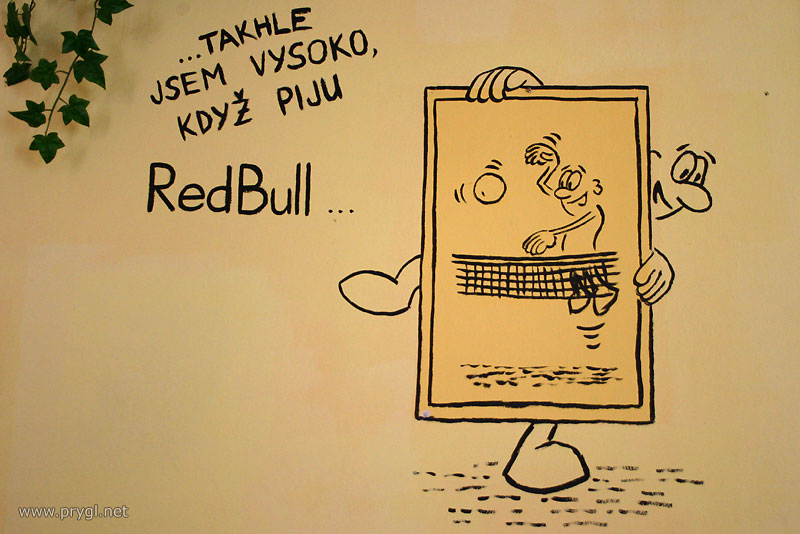 ...TAKHLE
JSEM VYSOKO,
KDYŽ PIJU
RedBull ...
www.prygl.net